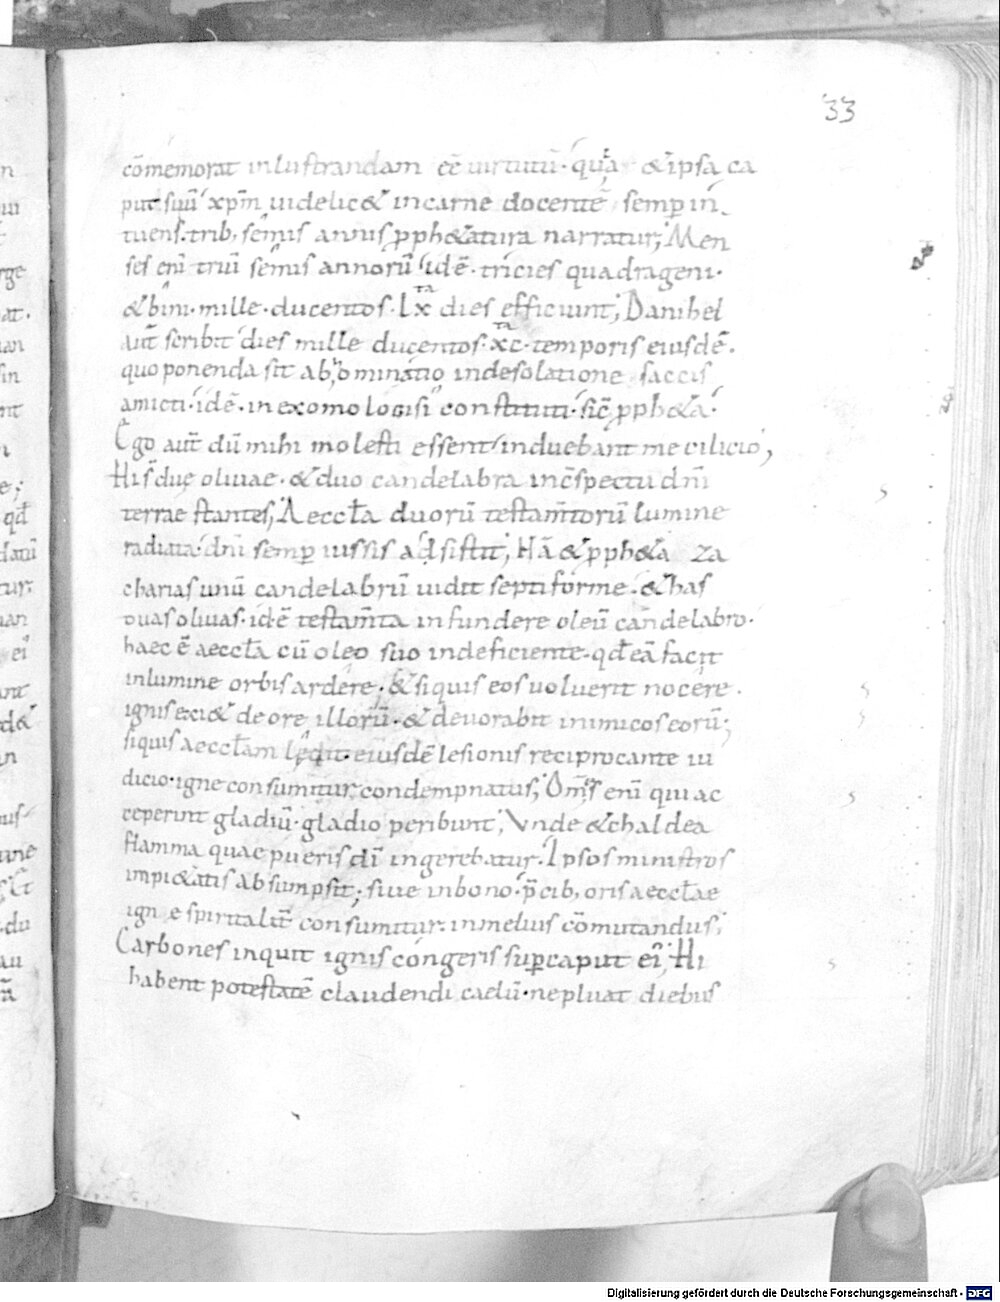 33
cōmemorat inlustrandam eē uirtutū · quia & ipsa ca
put suū xp̄m uidelic& incarne docentē semper in
tuens. trib; semis annis pph&atura narratur; Men
ses eni triū semis annorū idē · tricies quadrageni ·
& bini · mille · ducentos · Lx dies efficiunt; Danihel
aut̄ scribit dies mille ducentos · xc · temporis eiusdē ·
quo ponenda sit abominatio indesolatione saccis
amicti · idē · in exomologisi constituti · sic̄ pph&a ·
Ego aut̄ dū mihi molesti essent induebant me cilicio;
Hi s̄ due oliuae · & duo candelabra inc̄spectu dnī
terrae stantes; Aeccła duorū testam̄torū lumine
radiata · dnī semper iussis adsistit; Nā & pph&a za
charias unū candelabrū uidit septiforme · & has
duas oliuas · idē testam̄ta infundere oleū candelabro ·
haec ē aeccła cū oleo suo indeficiente · qd eā facit
inlumine orbis ardere · & siquis eos uoluerit nocere ·
ignis exi& de ore illorū · & deuorabit inimicos eorū;
siquis aecctam lędit · eiusdē lesionis reciprocante iu
dicio · igne consumitur condempnatus; Om̄s eni qui ac
ceperint gladiū · gladio peribunt; Vnde & chaldea
flamma quae pueris dī ingerebatur · Ipsos ministros
impi&atis absumpsit; siue inbono · p̄cib; oris aeccłae
igne spiritalit̄ consumitur · inmelius cōmutandus;
Carbones inquit ignis congeris super caput ei; Hi
habent potestatē claudendi caelū · ne pluat diebus
Digitalisierung gefördert durch die Deutsche Forschungsgemeinschaft - DFG